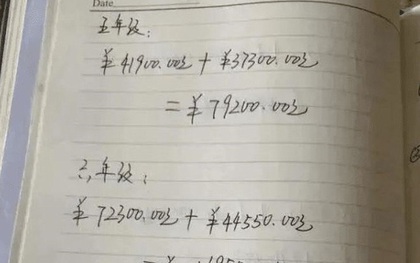 Date
五年级:
¥41900.00元+¥37300.00元
=¥79200.00元
六年级:
¥72300.00元+¥44550.00元